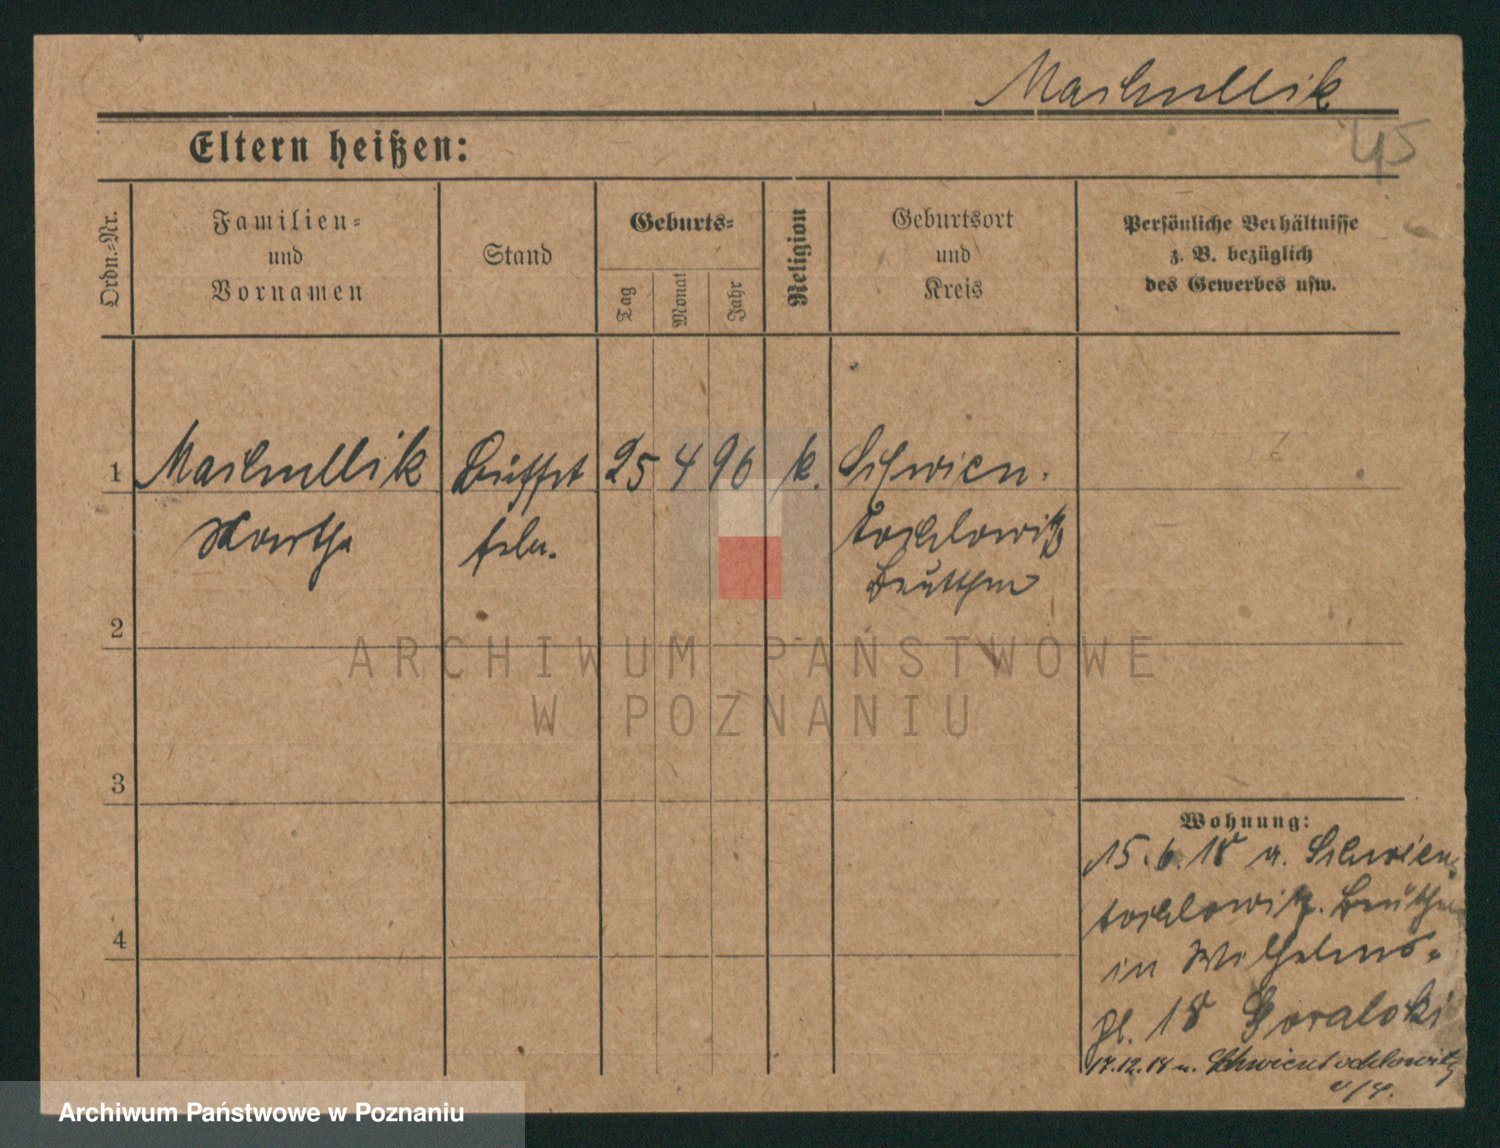 Machullik
45
Eltern heißen:
Ordn.-Nr.
Familien-
und
Vornamen
Stand
Geburts-
Tag
Monat
Jahr
Religion
Geburtsort
und
Kreis
Persönliche Verhältnisse
z. B. bezüglich
des Gewerbes usw.
1 Machullik Büffet 25 4 96 k. Schwien.
Martha frln. tochlowitz
Beuthen
2
ARCHIWUM PAŃSTWOWE
W POZNANIU
3
Wohnung:
15.6.18 v. Schwien
tochlowitz. Beuthen
4
in Wilhelms-
pl. 18 Goralski
17.12.18 n. Schwientochlowitz
Archiwum Państwowe w Poznaniu